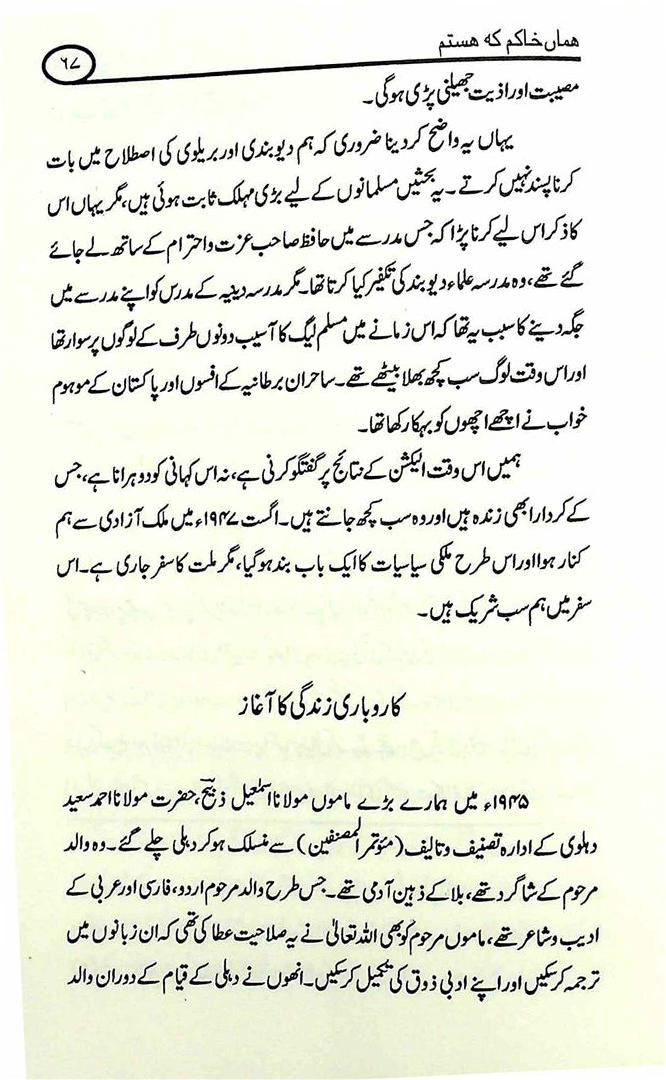 ھماں خاکم کہ ھستم
۶۷
مصیبت اور اذیت جھیلنی پڑی ہوگی۔
یہاں یہ واضح کر دینا ضروری کہ ہم دیوبندی اور بریلوی کی اصطلاح میں بات
کرنا پسند نہیں کرتے۔ یہ بحثیں مسلمانوں کے لیے بڑی مہلک ثابت ہوئی ہیں، مگر یہاں اس
کا ذکر اس لیے کرنا پڑا کہ جس مدرسے میں حافظ صاحب عزت و احترام کے ساتھ لے جائے
گئے تھے، وہ مدرسہ علماء دیوبند کی تکفیر کیا کرتا تھا۔ مگر مدرسہ دینیہ کے مدرس کو اپنے مدرسے میں
جگہ دینے کا سبب یہ تھا کہ اس زمانے میں مسلم لیگ کا آسیب دونوں طرف کے لوگوں پر سوار تھا
اور اس وقت لوگ سب کچھ بھلا بیٹھے تھے۔ ساحران برطانیہ کے افسوں اور پاکستان کے موہوم
خواب نے اچھے اچھوں کو بہکا رکھا تھا۔
ہمیں اس وقت الیکشن کے نتائج پر گفتگو کرنی ہے، نہ اس کہانی کو دوہرانا ہے، جس
کے کردار ابھی زندہ ہیں اور وہ سب کچھ جانتے ہیں۔ اگست ۱۹۴۷ء میں ملک آزادی سے ہم
کنار ہوا اور اس طرح ملکی سیاسیات کا ایک باب بند ہو گیا، مگر ملت کا سفر جاری ہے۔ اس
سفر میں ہم سب شریک ہیں۔
کاروباری زندگی کا آغاز
۱۹۴۵ء میں ہمارے بڑے ماموں مولانا اسمٰعیل ذبیحؔ، حضرت مولانا احمد سعید
دہلوی کے ادارہ تصنیف و تالیف (مؤتمر المصنفین) سے منسلک ہو کر دہلی چلے گئے۔ وہ والد
مرحوم کے شاگرد تھے، بلا کے ذہین آدمی تھے۔ جس طرح والد مرحوم اردو، فارسی اور عربی کے
ادیب و شاعر تھے، ماموں مرحوم کو بھی اللہ تعالیٰ نے یہ صلاحیت عطا کی تھی کہ ان زبانوں میں
ترجمہ کر سکیں اور اپنے ادبی ذوق کی تکمیل کر سکیں۔ انھوں نے دہلی کے قیام کے دوران والد